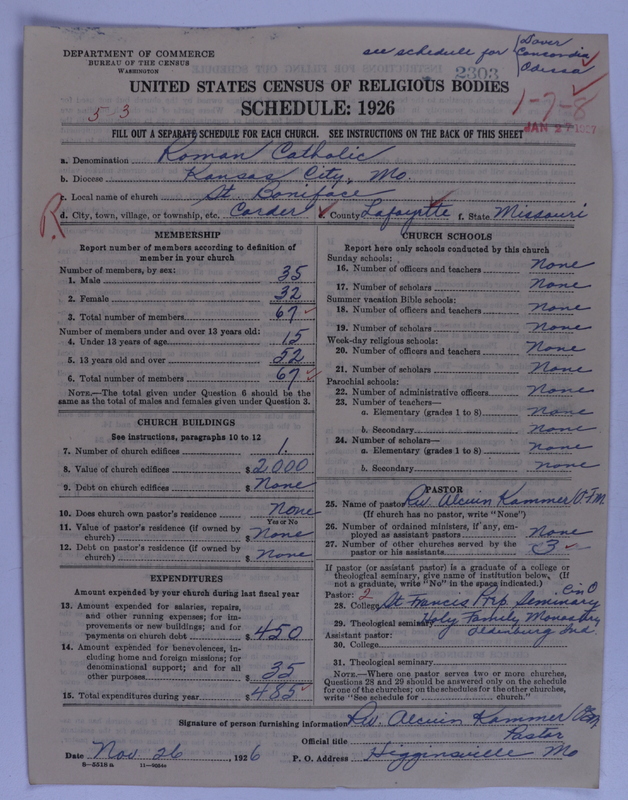 DEPARTMENT OF COMMERCE
BUREAU OF THE CENSUS
WASHINGTON
see schedule for { Dover
Concordia
Odessa
2303
UNITED STATES CENSUS OF RELIGIOUS BODIES
SCHEDULE: 1926
53
1-7-8
JAN 27 1927
FILL OUT A SEPARATE SCHEDULE FOR EACH CHURCH. SEE INSTRUCTIONS ON THE BACK OF THIS SHEET
a. Denomination Roman Catholic
b. Diocese Kansas City, Mo.
c. Local name of church St. Boniface
R
d. City, town, village, or township, etc. Corder County Lafayette f. State Missouri
MEMBERSHIP
Report number of members according to definition of
member in your church
Number of members, by sex:
1. Male 35
2. Female 32
3. Total number of members 67
Number of members under and over 13 years old:
4. Under 13 years of age 15
5. 13 years old and over 52
6. Total number of members 67
NOTE.—The total given under Question 6 should be the
same as the total of males and females given under Question 3.
CHURCH BUILDINGS
See instructions, paragraphs 10 to 12
7. Number of church edifices 1.
8. Value of church edifices $ 2,000
9. Debt on church edifices $ None
10. Does church own pastor's residence? None
Yes or No
11. Value of pastor's residence (if owned by
church) $ None
12. Debt on pastor's residence (if owned by
church) $ None
EXPENDITURES
Amount expended by your church during last fiscal year
13. Amount expended for salaries, repairs,
and other running expenses; for im-
provements or new buildings; and for
payments on church debt $ 450
14. Amount expended for benevolences, in-
cluding home and foreign missions; for
denominational support; and for all
other purposes $ 35
15. Total expenditures during year $ 485
CHURCH SCHOOLS
Report here only schools conducted by this church
Sunday schools:
16. Number of officers and teachers None
17. Number of scholars None
Summer vacation Bible schools:
18. Number of officers and teachers None
19. Number of scholars None
Week-day religious schools:
20. Number of officers and teachers None
21. Number of scholars None
Parochial schools:
22. Number of administrative officers None
23. Number of teachers—
a. Elementary (grades 1 to 8) None
b. Secondary None
24. Number of scholars—
a. Elementary (grades 1 to 8) None
b. Secondary None
PASTOR
25. Name of pastor Rev. Alcuin Kammer, O.F.M
(If church has no pastor, write "None")
26. Number of ordained ministers, if any, em-
ployed as assistant pastors None
27. Number of other churches served by the
pastor or his assistants 3
If pastor (or assistant pastor) is a graduate of a college or
theological seminary, give name of institution below. (If
not a graduate, write "No" in the space indicated.)
Pastor: 2 Cin O
28. College St Francis Prep Seminary
29. Theological seminary Holy Family Monastery
Assistant pastor: Oldenburg Ind.
30. College
31. Theological seminary
NOTE.—Where one pastor serves two or more churches,
Questions 28 and 29 should be answered only on the schedule
for one of the churches; on the schedules for the other churches,
write "See schedule for church."
Signature of person furnishing information Rev. Alcuin Kammer O.F.M.
Official title Pastor
Date Nov 26, 1926 P. O. Address Higginsville Mo
8—5518 a